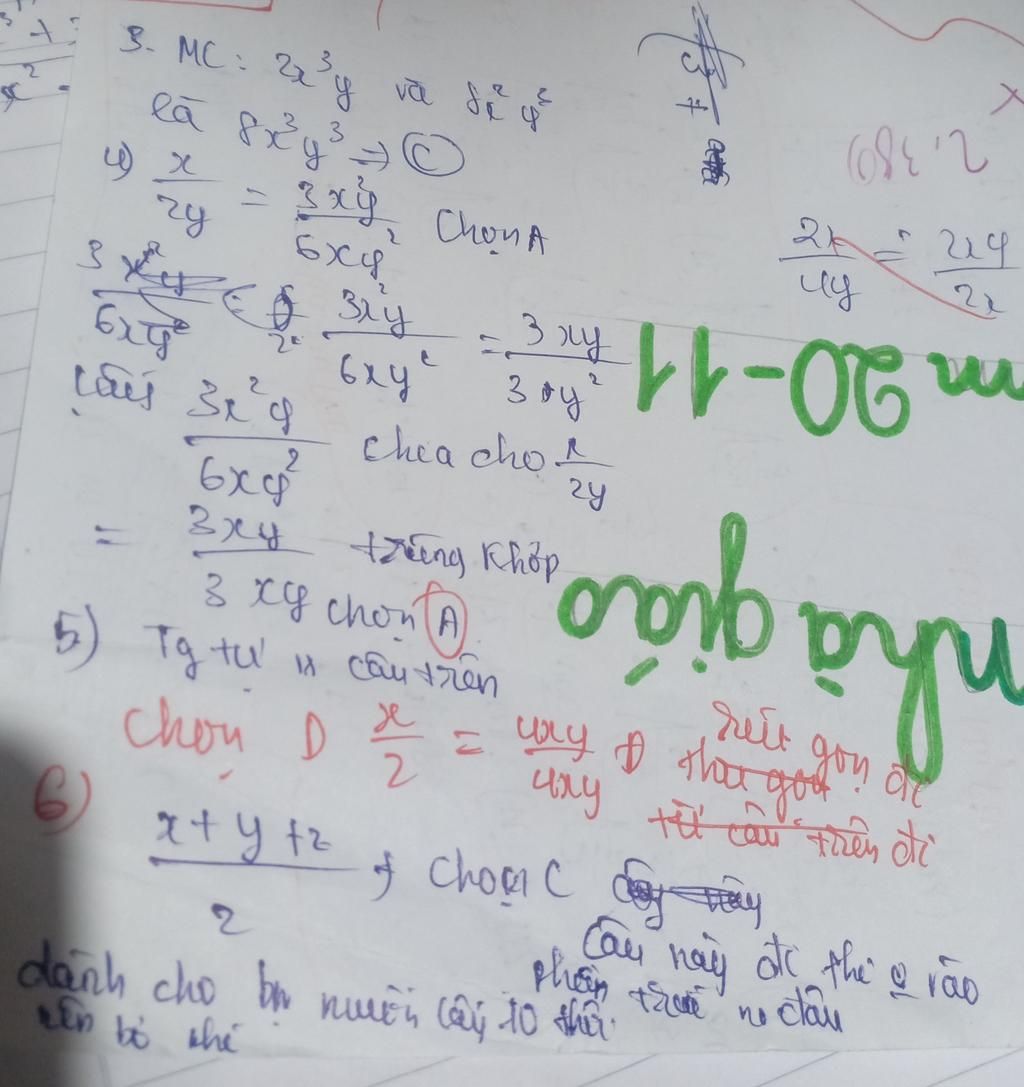 3. MC: 2x³y và 8x²y²
là 8x³y³ ⇒ C
4) x/2y = 3x²y/6xy² Chọn A
3x²y/6xy² = 3x²y/6xy² = 3xy/3xy²
lấy 3x²y/6xy² chia cho x/2y
= 3xy/3xy trùng khớp
chọn A
5) Tg tự câu trên
Chọn D x/2 = 4xy/4xy rút gọn đi
thu gọn
từ câu trên đi
6) x+y+z/2 Chọn C
câu này đi thi vào
dành cho bn muốn lấy 10 thôi
nên bỏ nhé
2x/4y = 2xy/2x
20-11
nhà giáo